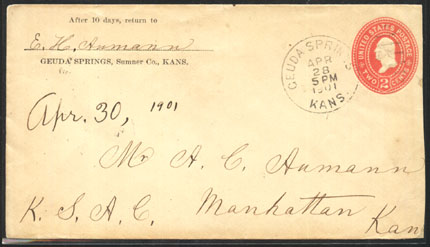 After 10 days, return to
E. H. Aumann
GEUDA SPRINGS, Sumner Co., KANS.
GEUDA SPRINGS
APR
28
5PM
1901
KANS.
UNITED STATES POSTAGE
TWO 2 CENTS
Apr. 30, 1901
Mr A. C. Aumann
K. S. A. C. Manhattan
Kan